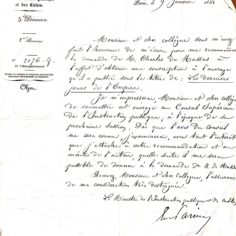 et des Cultes.
Paris, le 9 Janvier
Division
Bureau
Monsieur et cher collègue, vous m'avez
fait l'honneur de m'écrire pour me recommander
la demande de M. Charles de
l'effet d'obtenir une souscription à l'ouvrage
qu'il a publié sous le titre de : Les derniers
jours de l'Empire.
Je m'empresse, Monsieur et cher collègue
de soumettre cet ouvrage au Conseil Supérieur
de l'Instruction publique, à l'époque de sa
prochaine session. Dès que l'avis du Conseil
me sera connu, j'examinerai, avec tout l'intérêt
que j'attache à votre recommandation et au
mérite de l'auteur, quelle suite il me sera
possible de donner à la demande de M. de
Monsieur et cher collègue, l'assurance
de ma considération très distinguée.
Le Ministre de l'Instruction publique et des Cultes,